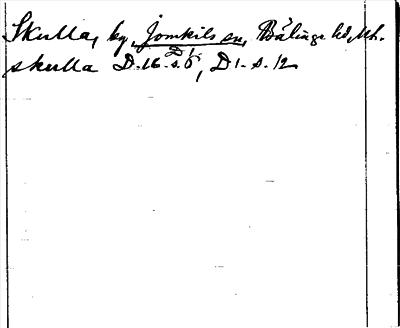 Skulla, by, Jomkils sn, Bälinge hd, Upl.
skulla D. 16. s. 6, D 1. s. 12